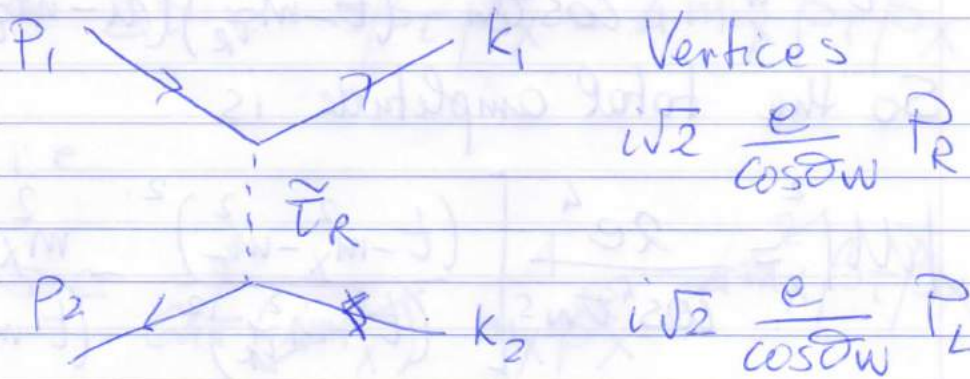 p₁ k₁ Vertices
i√2 e/cosθw P_R
τ̃_R
p₂ k₂ i√2 e/cosθw P_L